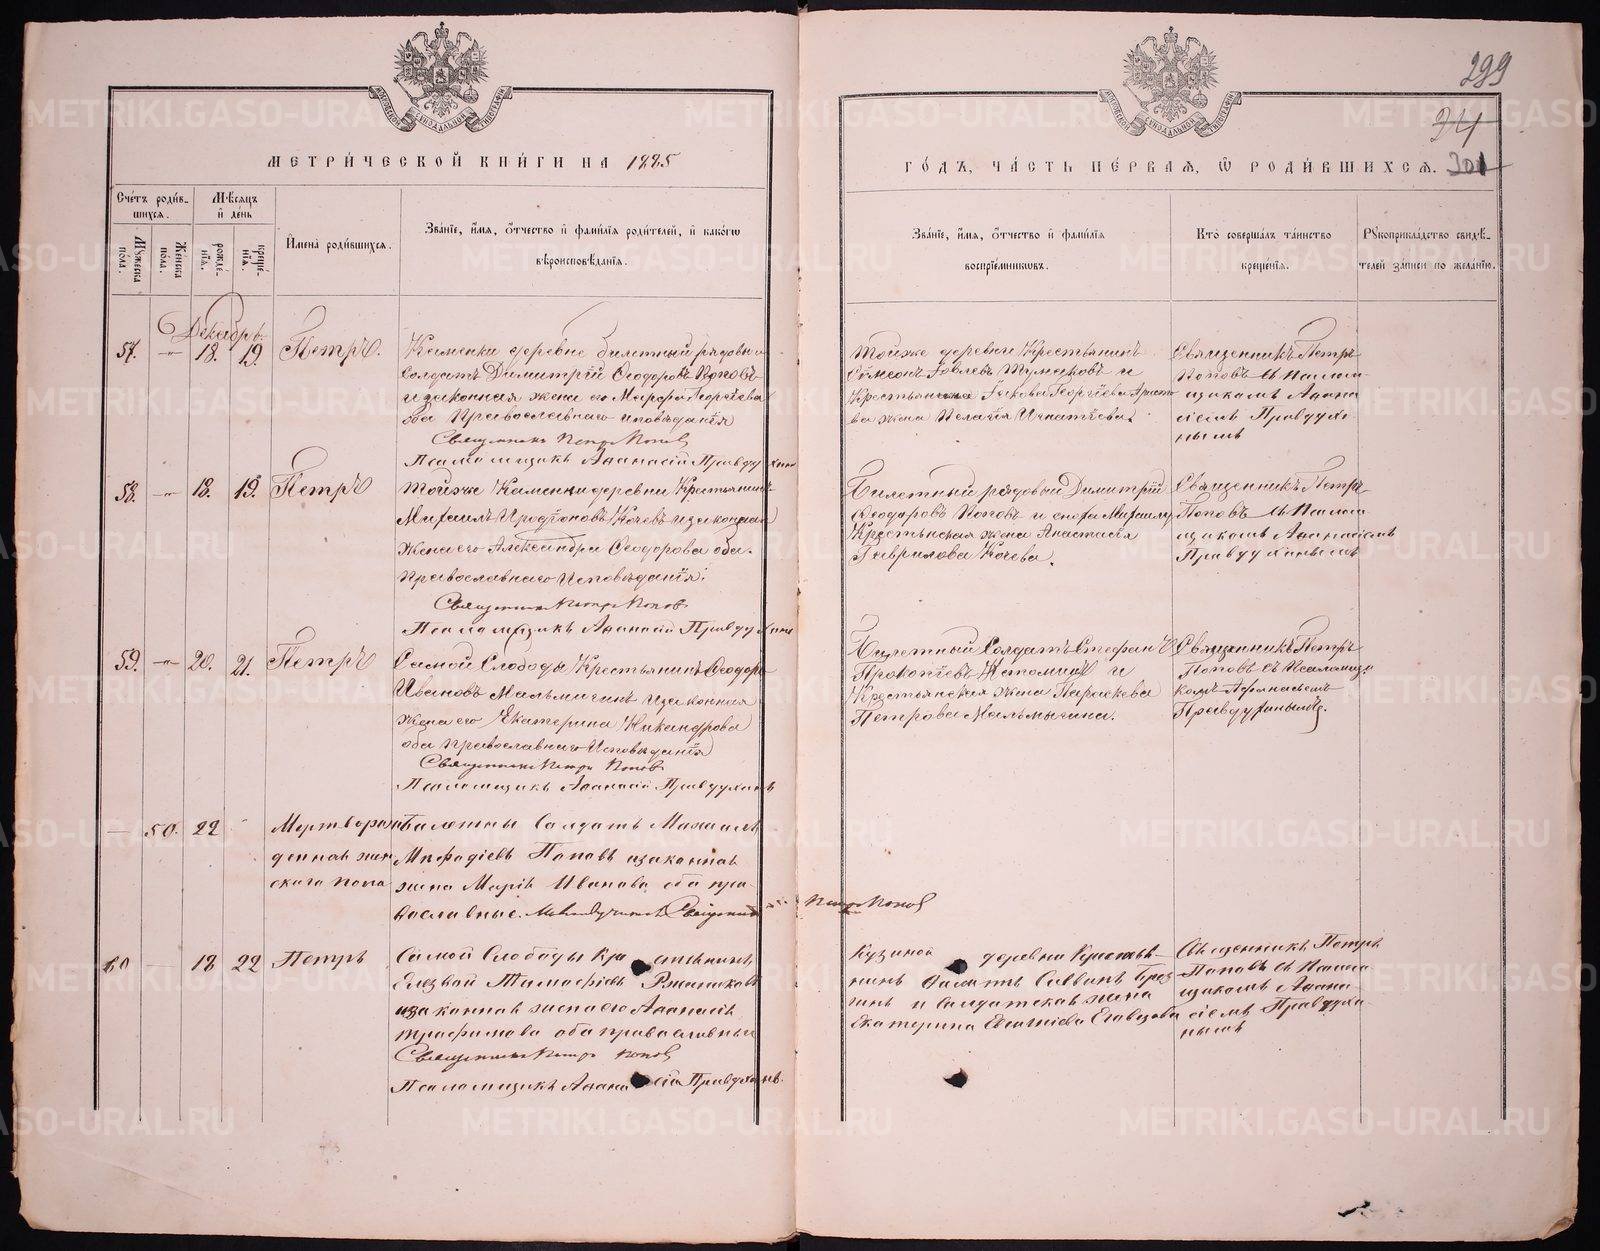 299
24
301
МЕТРИ́ЧЕСКОЙ КНИ́ГИ НА 1885
ГО́ДЪ, ЧА́СТЬ ПЕ́РВАЯ, Ѡ РОДИ́ВШИХСЯ.
Сче́тъ роди́вшихся.
Мѣ́сяцъ и де́нь
Му́жеска по́ла.
Же́нска по́ла.
рожде́нїя.
креще́нїя.
Имена̀ роди́вшихся.
Зва́нїе, и́мя, о́тчество и фами́лїя роди́телей, и како́гѡ вѣроисповѣ́данїя.
Зва́нїе, и́мя, о́тчество и фами́лїя воспрїе́мникѡвъ.
Кто̀ соверша́лъ та́инство креще́нїя.
Рꙋкоприкла́дство свидѣ́телей за́писи по жела́нїю.
Декабрь
57. 18. 19. Петръ.
Каменки деревне билетный рядовый
солдатъ Димитрій Ѳеодоровъ Поповъ
и законная жена его Марфа Георгіева
оба Православнаго исповѣданія
Священникъ Петръ Поповъ
Псаломщикъ Аѳанасій Правдухинъ
Тойже деревни Крестьянинъ
Симеонъ Іовлевъ и
Крестьянина Іакова Георгіева
жена Пелагія Игнатіева.
Священникъ Петръ
Поповъ съ Псалом
щикомъ Аѳана
сіемъ Правдухи
нымъ
58. 18. 19. Петръ
Тойже Каменки деревни Крестьянинъ
Михаилъ Иродіоновъ Кочевъ и законная
жена его Александра Ѳеодорова оба
Православнаго Исповѣданія.
Священникъ Петръ Поповъ
Псаломщикъ Аѳанасій Правдухинъ
Билетный рядовой Димитрій
Ѳеодоровъ Поповъ и
Крестьянская жена Анастасія
Гаврилова Кочева.
Священникъ Петръ
Поповъ съ Псалом
щикомъ Аѳанасіемъ
Правдухинымъ
59. 20. 21. Петръ
Самой Слободы Крестьянинъ Ѳеодоръ
Ивановъ Мальмыгинъ и законная
жена его Екатерина Никандрова
оба православнаго Исповѣданія
Священникъ Петръ Поповъ
Псаломщикъ Аѳанасій Правдухинъ
Билетный Солдатъ Стефанъ
Прокопіевъ Истоминъ и
Крестьянская жена Параскева
Петрова Мальмыгина.
Священникъ Петръ
Поповъ съ Псаломщи
комъ Аѳанасіемъ
Правдухинымъ.
50. 22 Мертворож
денная жен
скаго пола
Билетны Солдатъ Михаилъ
Меѳодіевъ Поповъ и законная
жена Марія Иванова оба пра
вославные. Священникъ Петръ Поповъ
60 18 22 Петръ
Самой Слободы Крестьянинъ
Тимофіевъ
и законная жена его Аѳанасія
Трофимова оба православные
Священникъ Петръ Поповъ
Псаломщикъ Аѳанасій Правдухинъ.
Кузиной деревни Крестья
нинъ
и Солдатская жена
Екатерина
Священникъ Петръ
Поповъ съ Псалом
щикомъ Аѳана
сіемъ Правдухи
нымъ
METRIKI.GASO-URAL.RU